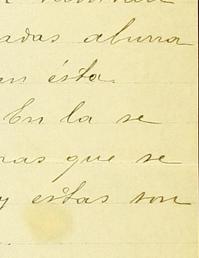 adas aburra
an ésta.
En la se
ras que se
y estas son